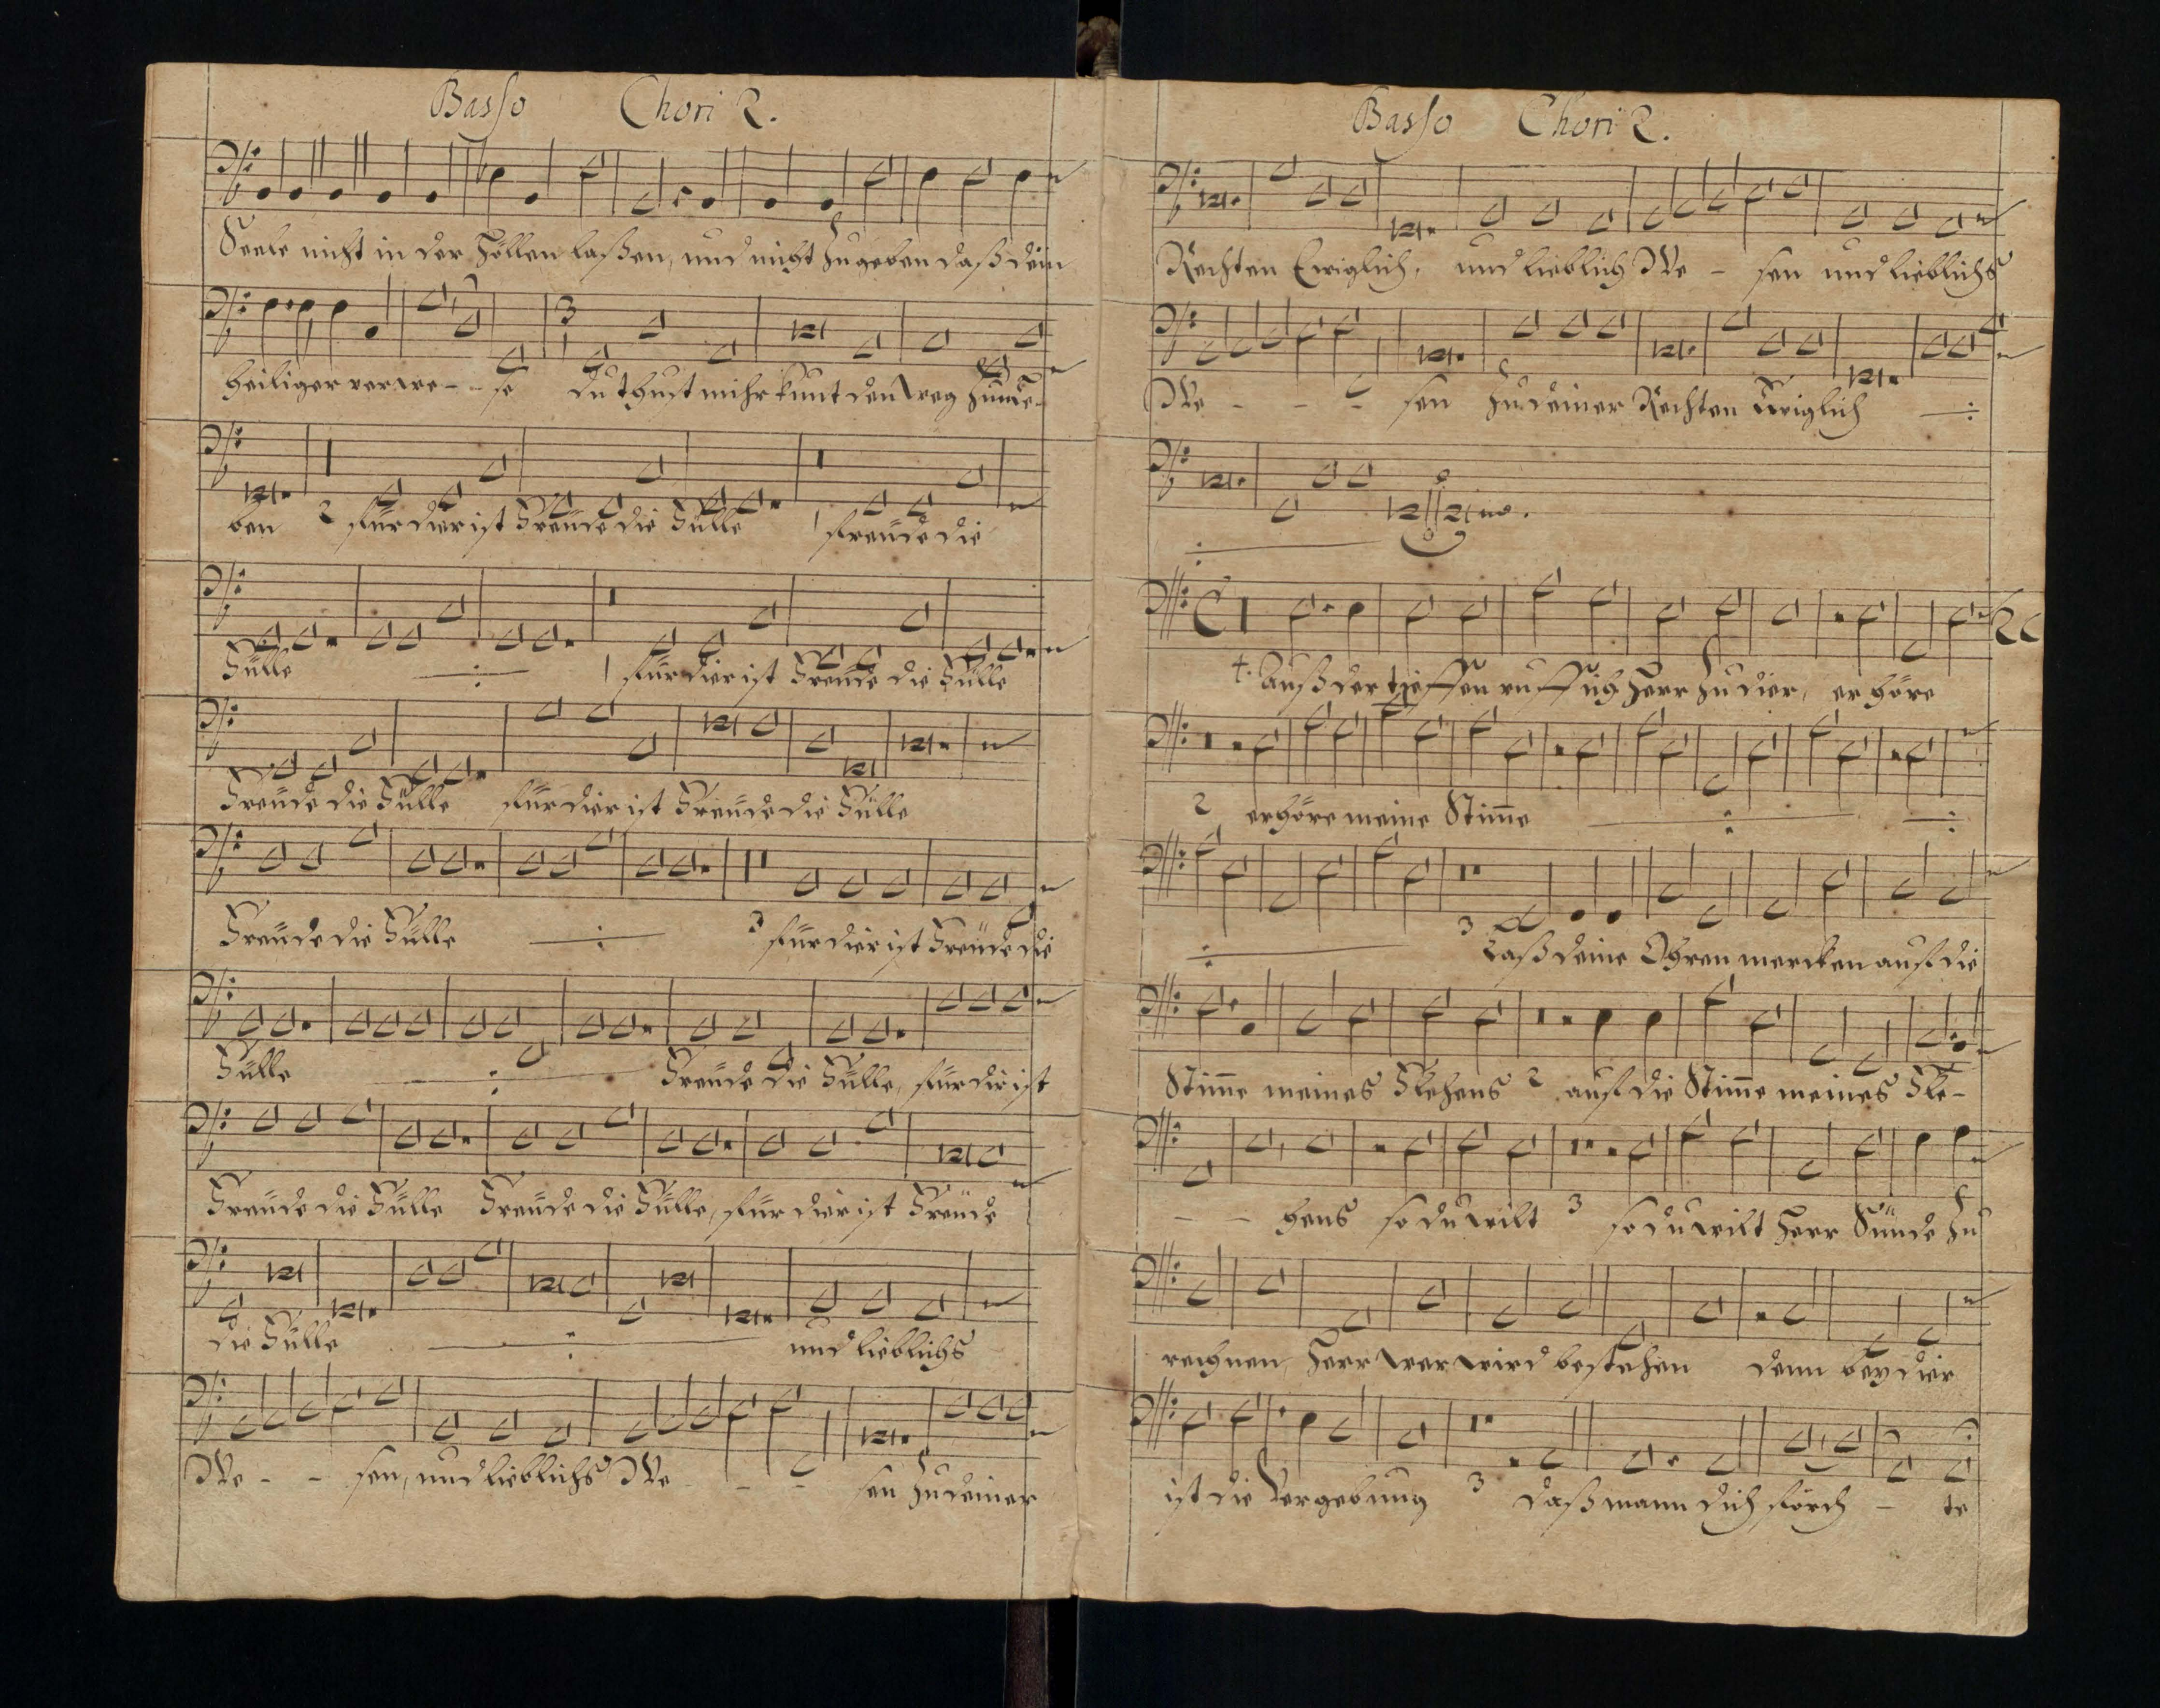 Basso Chori 2.
Seele nicht in der Höllen laßen, und nicht zugeben daß dein
3
heiliger verwe - - se du thust mihr kunt den weg zum le-
ben 2 für dier ist Freude die Fülle 1 freude die
Fülle 1 für dier ist Freude die Fülle
Freude die Fülle für dier ist Freude die Fülle
Freude die Fülle 3 für dier ist Freude die
Fülle Freude die Fülle, für dir ist
Freude die Fülle Freude die Fülle, für dier ist Freude
die Fülle und lieblichs
We - - sen, und lieblichs We - - sen zu deiner
Basso Chori 2.
Rechten Ewiglich, und lieblich We - sen und lieblichs
We - - - sen zu deiner Rechten Ewiglich
C
4. Auß der tieffen ruff ich Herr zu dier, er höre
2 erhöre meine Stim̄e
3 Laß deine Ohren mercken auf die
Stim̄e meines Flehens 2 auf die Stim̄e meines Fle-
- - hens so du wilt 3 so du wilt Herr Sünde zu
rechnen, Herr wer wird bestehen denn bey dier
ist die Vergebung 3 daß mann dich förch - te